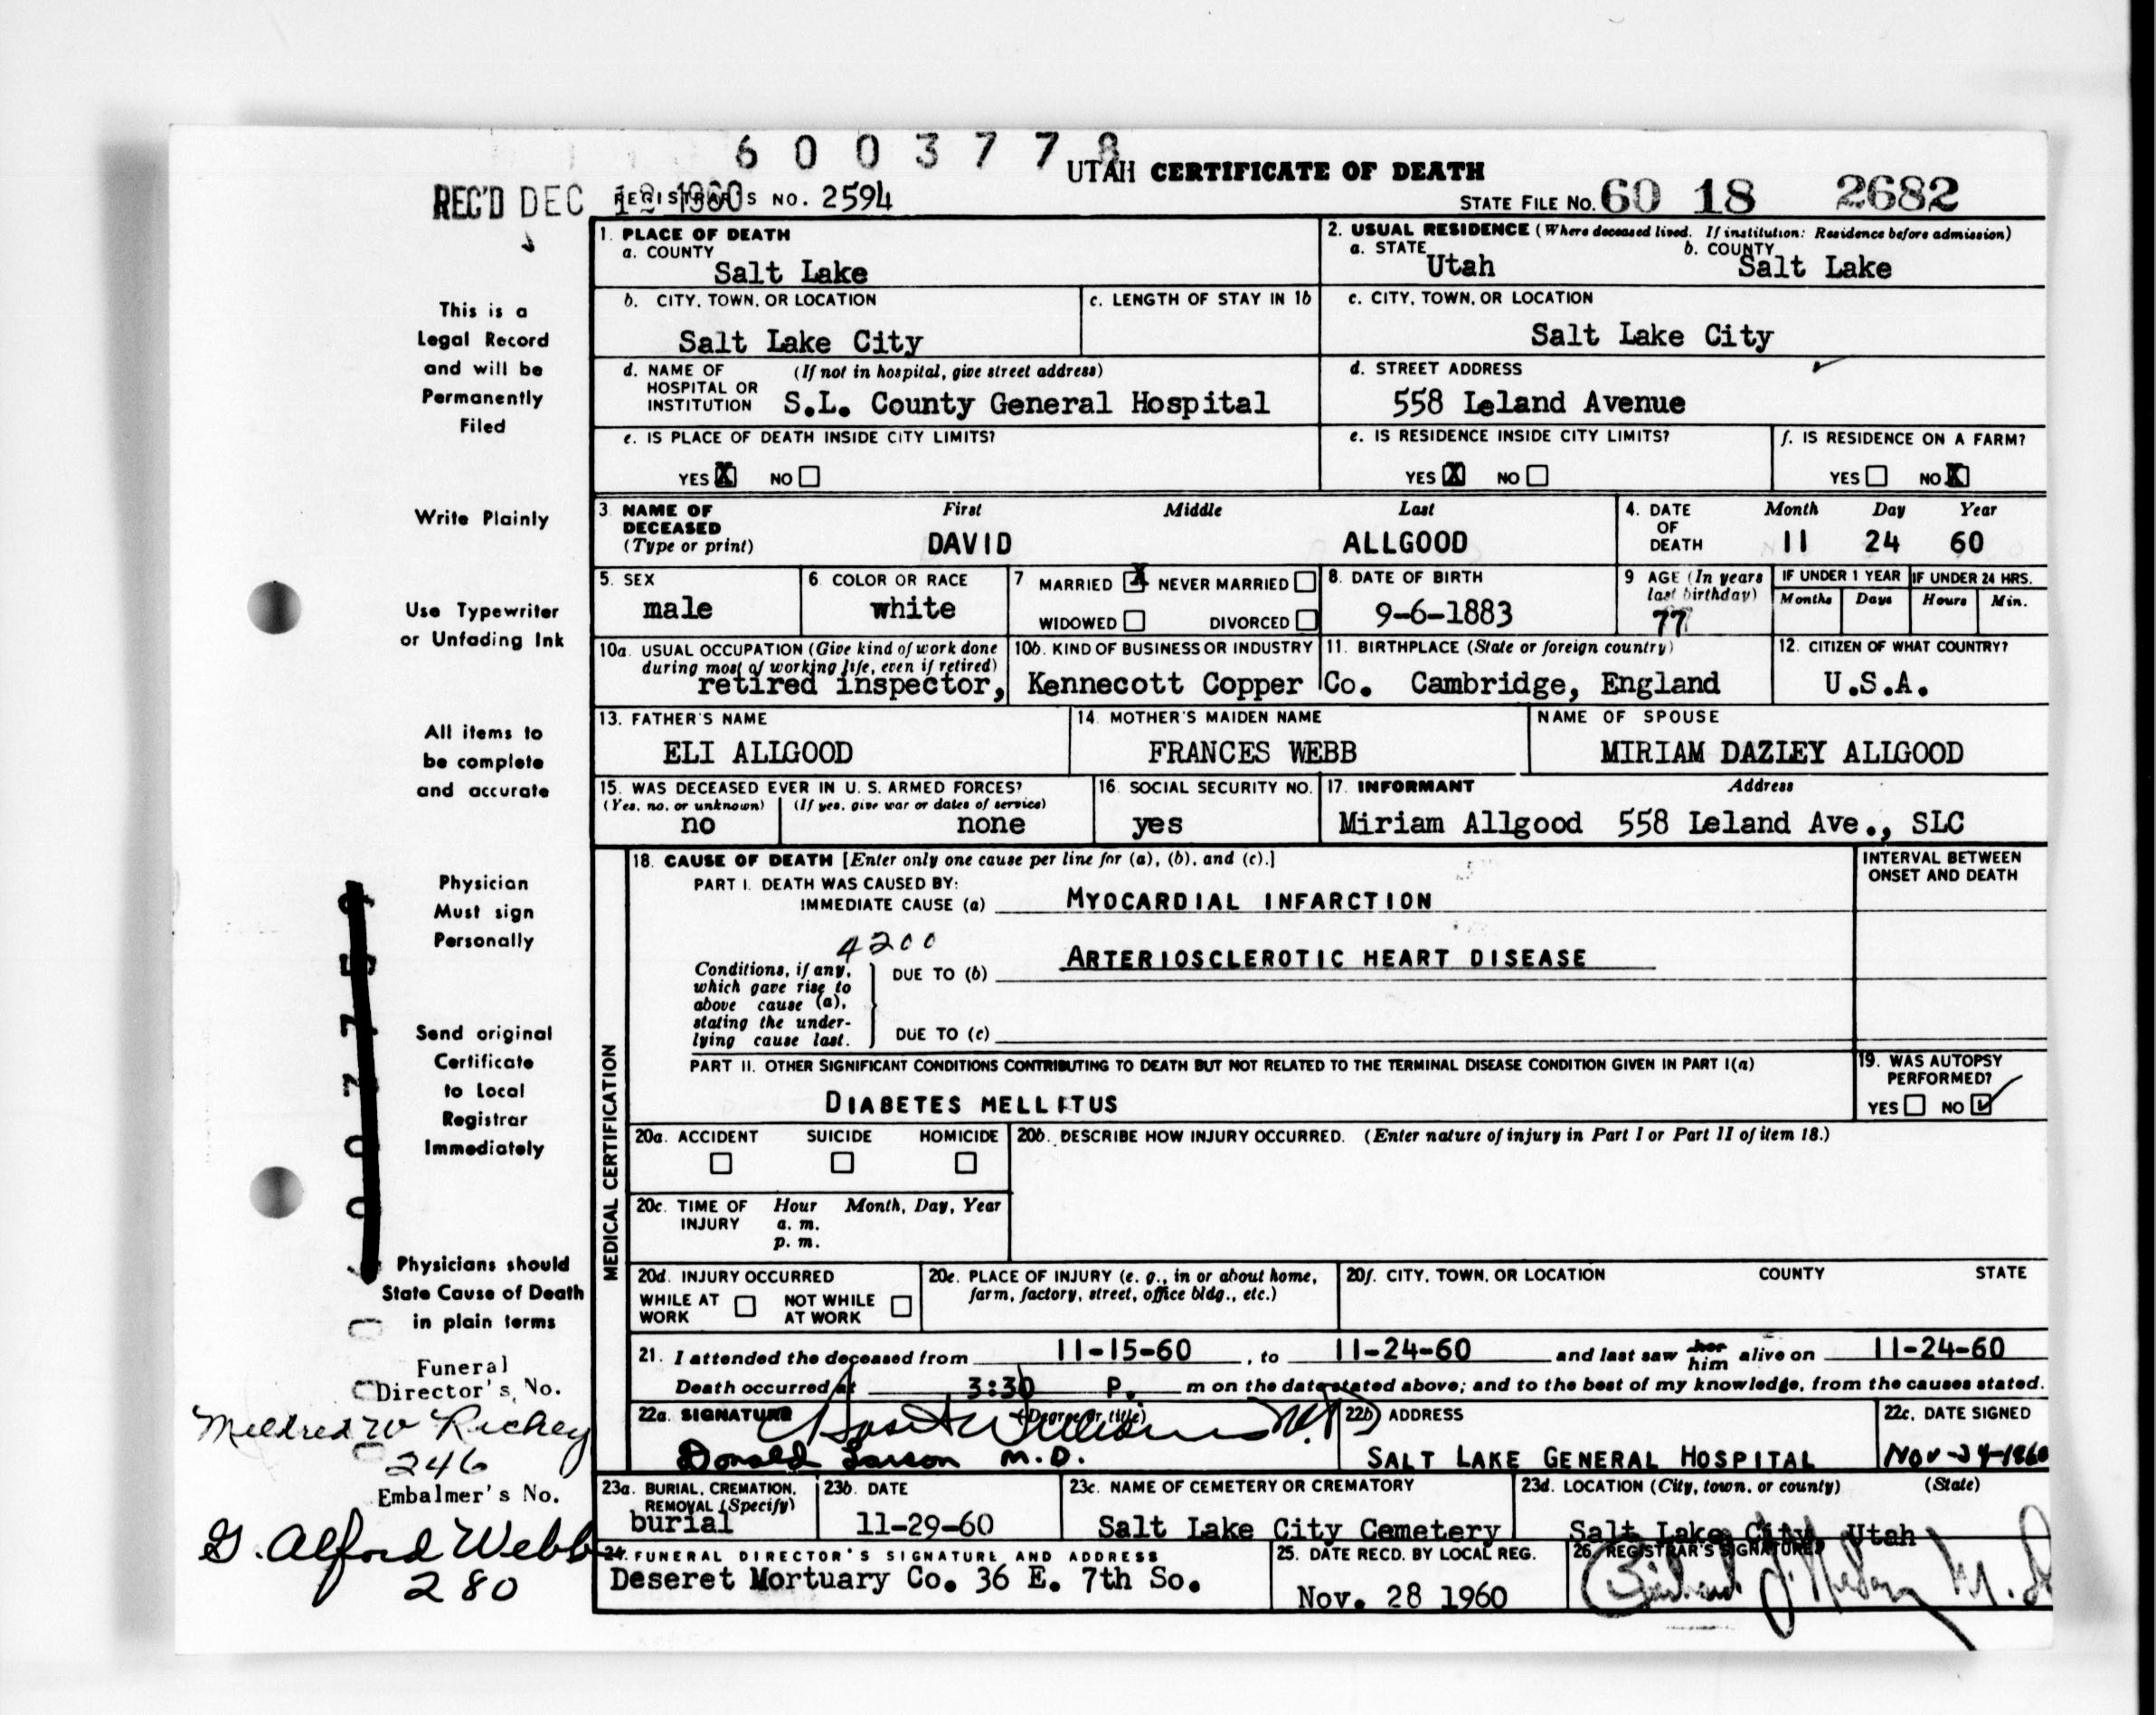 6 0 0 3 7 7 8
UTAH CERTIFICATE OF DEATH
REC'D DEC 12 1960 REGISTRAR'S NO. 2594
STATE FILE NO. 60 18 2682
This is a
Legal Record
and will be
Permanently
Filed
Write Plainly
Use Typewriter
or Unfading Ink
All items to
be complete
and accurate
Physician
Must sign
Personally
Send original
Certificate
to Local
Registrar
Immediately
Physicians should
State Cause of Death
in plain terms
Funeral
Director's No.
Mildred W Richey
246
Embalmer's No.
G. Alford Webb
280
1. PLACE OF DEATH
a. COUNTY
Salt Lake
2. USUAL RESIDENCE (Where deceased lived. If institution: Residence before admission)
a. STATE b. COUNTY
Utah Salt Lake
b. CITY, TOWN, OR LOCATION
Salt Lake City
c. LENGTH OF STAY IN 1b
c. CITY, TOWN, OR LOCATION
Salt Lake City
d. NAME OF (If not in hospital, give street address)
HOSPITAL OR
INSTITUTION S.L. County General Hospital
d. STREET ADDRESS
558 Leland Avenue
e. IS PLACE OF DEATH INSIDE CITY LIMITS?
YES X NO
e. IS RESIDENCE INSIDE CITY LIMITS?
YES X NO
f. IS RESIDENCE ON A FARM?
YES NO X
3. NAME OF First Middle Last
DECEASED
(Type or print) DAVID ALLGOOD
4. DATE Month Day Year
OF
DEATH 11 24 60
5. SEX
male
6. COLOR OR RACE
white
7 MARRIED X NEVER MARRIED
WIDOWED DIVORCED
8. DATE OF BIRTH
9-6-1883
9 AGE (In years
last birthday)
77
IF UNDER 1 YEAR
Months Days
IF UNDER 24 HRS.
Hours Min.
10a. USUAL OCCUPATION (Give kind of work done
during most of working life, even if retired)
retired inspector,
10b. KIND OF BUSINESS OR INDUSTRY
Kennecott Copper Co.
11. BIRTHPLACE (State or foreign country)
Cambridge, England
12. CITIZEN OF WHAT COUNTRY?
U.S.A.
13. FATHER'S NAME
ELI ALLGOOD
14. MOTHER'S MAIDEN NAME
FRANCES WEBB
NAME OF SPOUSE
MIRIAM DAZLEY ALLGOOD
15. WAS DECEASED EVER IN U. S. ARMED FORCES?
(Yes, no, or unknown) (If yes, give war or dates of service)
no none
16. SOCIAL SECURITY NO.
yes
17. INFORMANT Address
Miriam Allgood 558 Leland Ave., SLC
MEDICAL CERTIFICATION
18. CAUSE OF DEATH [Enter only one cause per line for (a), (b), and (c).]
PART I. DEATH WAS CAUSED BY:
IMMEDIATE CAUSE (a) MYOCARDIAL INFARCTION
INTERVAL BETWEEN
ONSET AND DEATH
4200
Conditions, if any,
which gave rise to
above cause (a),
stating the under-
lying cause last.
DUE TO (b) ARTERIOSCLEROTIC HEART DISEASE
DUE TO (c)
PART II. OTHER SIGNIFICANT CONDITIONS CONTRIBUTING TO DEATH BUT NOT RELATED TO THE TERMINAL DISEASE CONDITION GIVEN IN PART I(a)
DIABETES MELLITUS
19. WAS AUTOPSY
PERFORMED?
YES NO ✓
20a. ACCIDENT SUICIDE HOMICIDE
20b. DESCRIBE HOW INJURY OCCURRED. (Enter nature of injury in Part I or Part II of item 18.)
20c. TIME OF Hour Month, Day, Year
INJURY a. m.
p. m.
20d. INJURY OCCURRED
WHILE AT NOT WHILE
WORK AT WORK
20e. PLACE OF INJURY (e. g., in or about home,
farm, factory, street, office bldg., etc.)
20f. CITY, TOWN, OR LOCATION COUNTY STATE
21. I attended the deceased from 11-15-60, to 11-24-60 and last saw her him alive on 11-24-60
Death occurred at 3:30 P. m on the date stated above; and to the best of my knowledge, from the causes stated.
22a. SIGNATURE (Degree or title)
Donald Larson M.D.
22b ADDRESS
SALT LAKE GENERAL HOSPITAL
22c. DATE SIGNED
Nov-24-1960
23a. BURIAL, CREMATION,
REMOVAL (Specify)
burial
23b. DATE
11-29-60
23c. NAME OF CEMETERY OR CREMATORY
Salt Lake City Cemetery
23d. LOCATION (City, town, or county) (State)
Salt Lake City Utah
24. FUNERAL DIRECTOR'S SIGNATURE AND ADDRESS
Deseret Mortuary Co. 36 E. 7th So.
25. DATE RECD. BY LOCAL REG.
Nov. 28 1960
26. REGISTRAR'S SIGNATURE